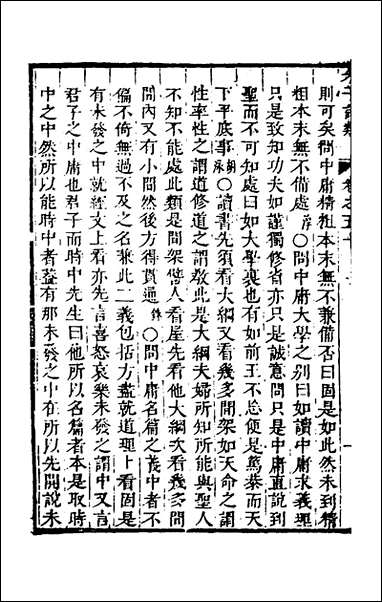 則可矣問中庸精粗本末無不兼備否曰固是如此然未到精
粗本末無不備處淳○問中庸大學之別曰如讀中庸求義理
只是致知功夫如謹獨修省亦只是誠意問只是中庸直說到
聖而不可知處曰如大學裏也有如前王不忘便是篤恭而天
下平底事胡泳○讀書先須看大綱又看幾多間架如天命之謂
性率性之謂道修道之謂教此是大綱夫婦所知所能與聖人
不知不能處此類是間架譬人看屋先看他大綱次看幾多間
間內又有小間然後方得貫通銖○問中庸名篇之義中者不
偏不倚無過不及之名兼此二義包括方盡就道理上看固是
有未發之中就經文上看亦先言喜怒哀樂未發之謂中又言
君子之中庸也君子而時中先生曰他所以名篇者本是取時
中之中然所以能時中者蓋有那未發之中在所以先開說未